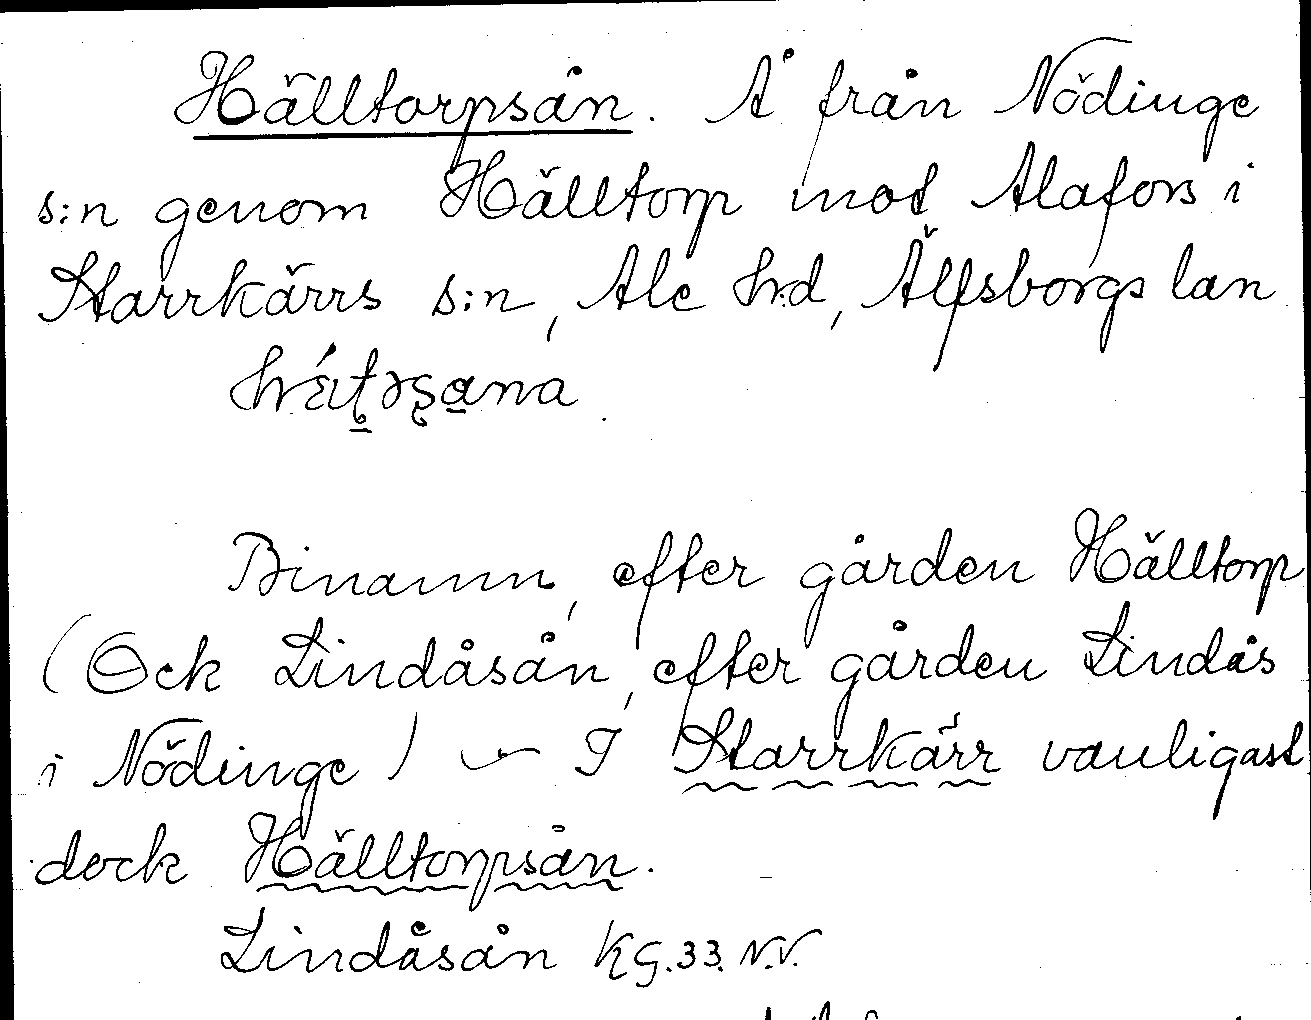 Hälltorpsån. Å från Nödinge
s:n genom Hälltorp mot Alafors i
Starrkärrs s:n, Ale hd, Älfsborgs lan
Binamn, efter gården Hälltorp
(Ock Lindåsån, efter gården Lindås
i Nödinge) — I Starrkärr vanligast
dock Hälltorpsån.
Lindåsån KG.33. N.V.